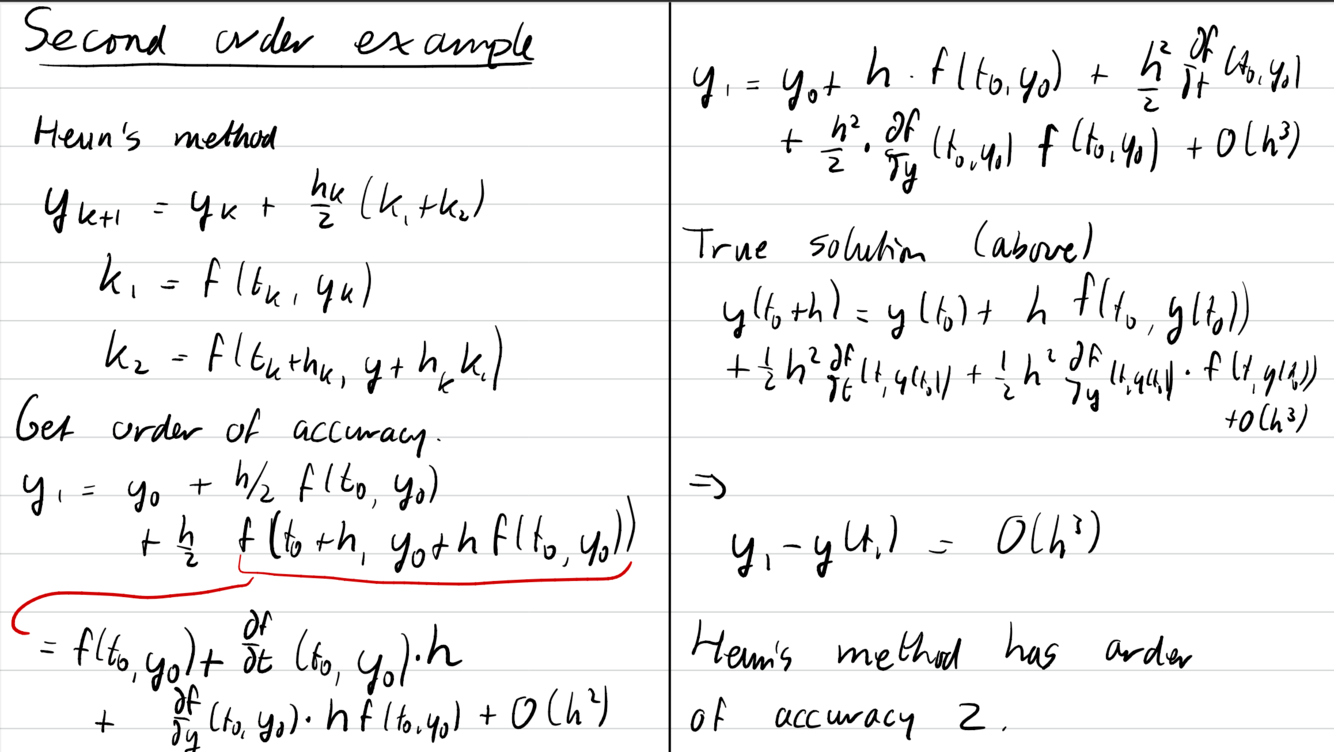 Second order example
Heun's method
y_{k+1} = y_k + h_k/2 (k_1 + k_2)
k_1 = f(t_k, y_k)
k_2 = f(t_k + h_k, y + h_k k_1)
Get order of accuracy.
y_1 = y_0 + h/2 f(t_0, y_0)
+ h/2 f(t_0 + h, y_0 + h f(t_0, y_0))
= f(t_0, y_0) + ∂f/∂t (t_0, y_0) · h
+ ∂f/∂y (t_0, y_0) · h f(t_0, y_0) + O(h^2)
y_1 = y_0 + h · f(t_0, y_0) + h^2/2 ∂f/∂t (t_0, y_0)
+ h^2/2 · ∂f/∂y (t_0, y_0) f(t_0, y_0) + O(h^3)
True solution (above)
y(t_0 + h) = y(t_0) + h f(t_0, y(t_0))
+ 1/2 h^2 ∂f/∂t (t, y(t_0)) + 1/2 h^2 ∂f/∂y (t, y(t_0)) · f(t, y(t_0))
+ O(h^3)
⇒
y_1 − y(t_1) = O(h^3)
Heun's method has order
of accuracy 2.